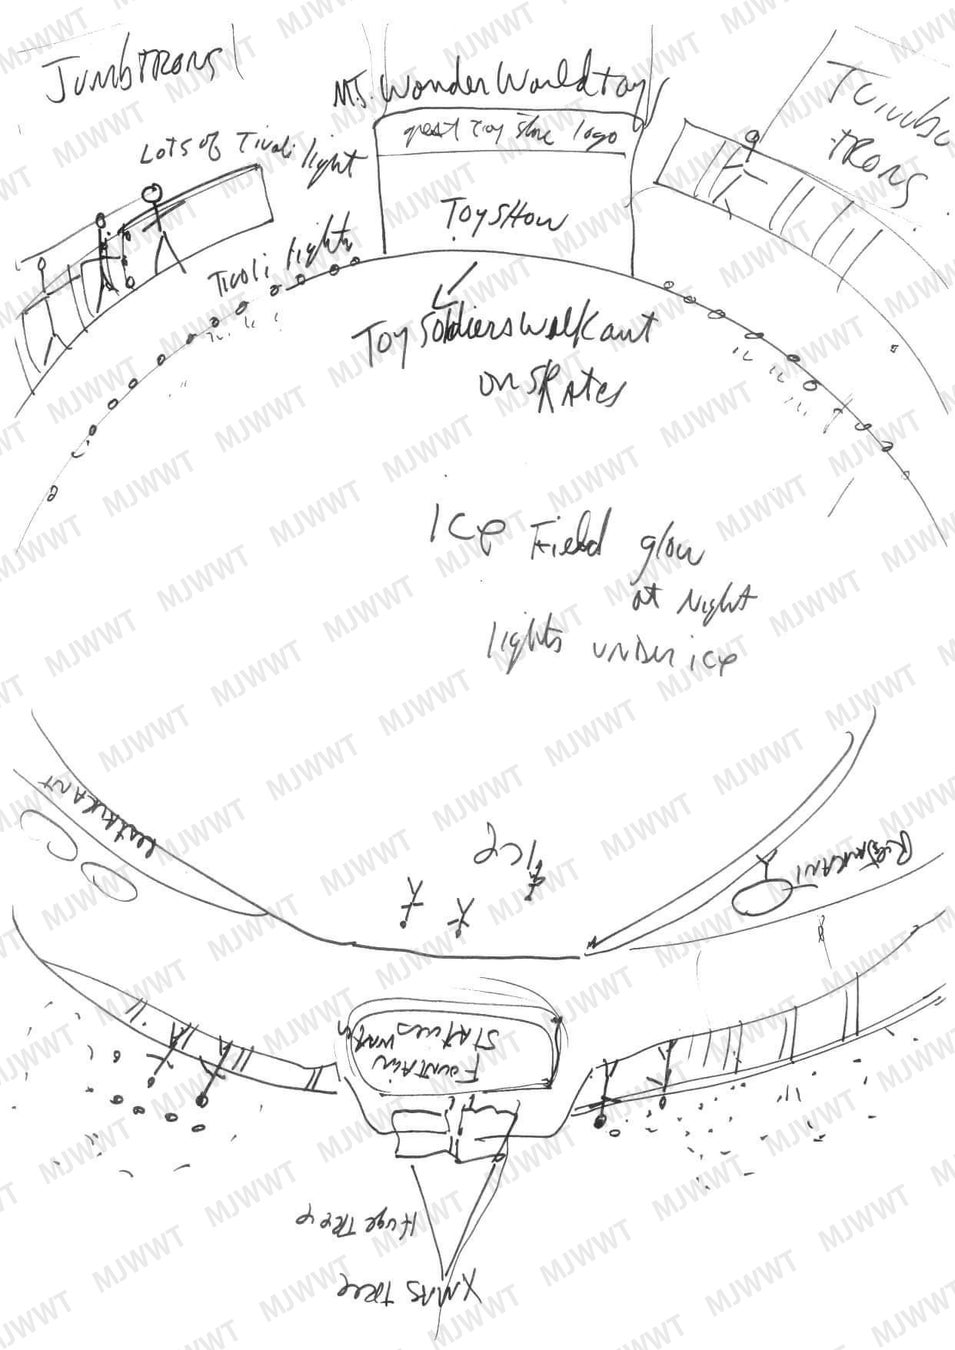 Jumbtrons
MJ. Wonder World toy
great toy store logo
Lots of Tivoli light
Jumbo
trons
Toy Show
Tivoli lights
Toy Soldiers walk out
on skates
Ice Field glow
at Night
lights under ice
Restaurant
Ice
Restaurant
Fountain
Statues water
Huge Tree
Xmas Tree
MJWWT